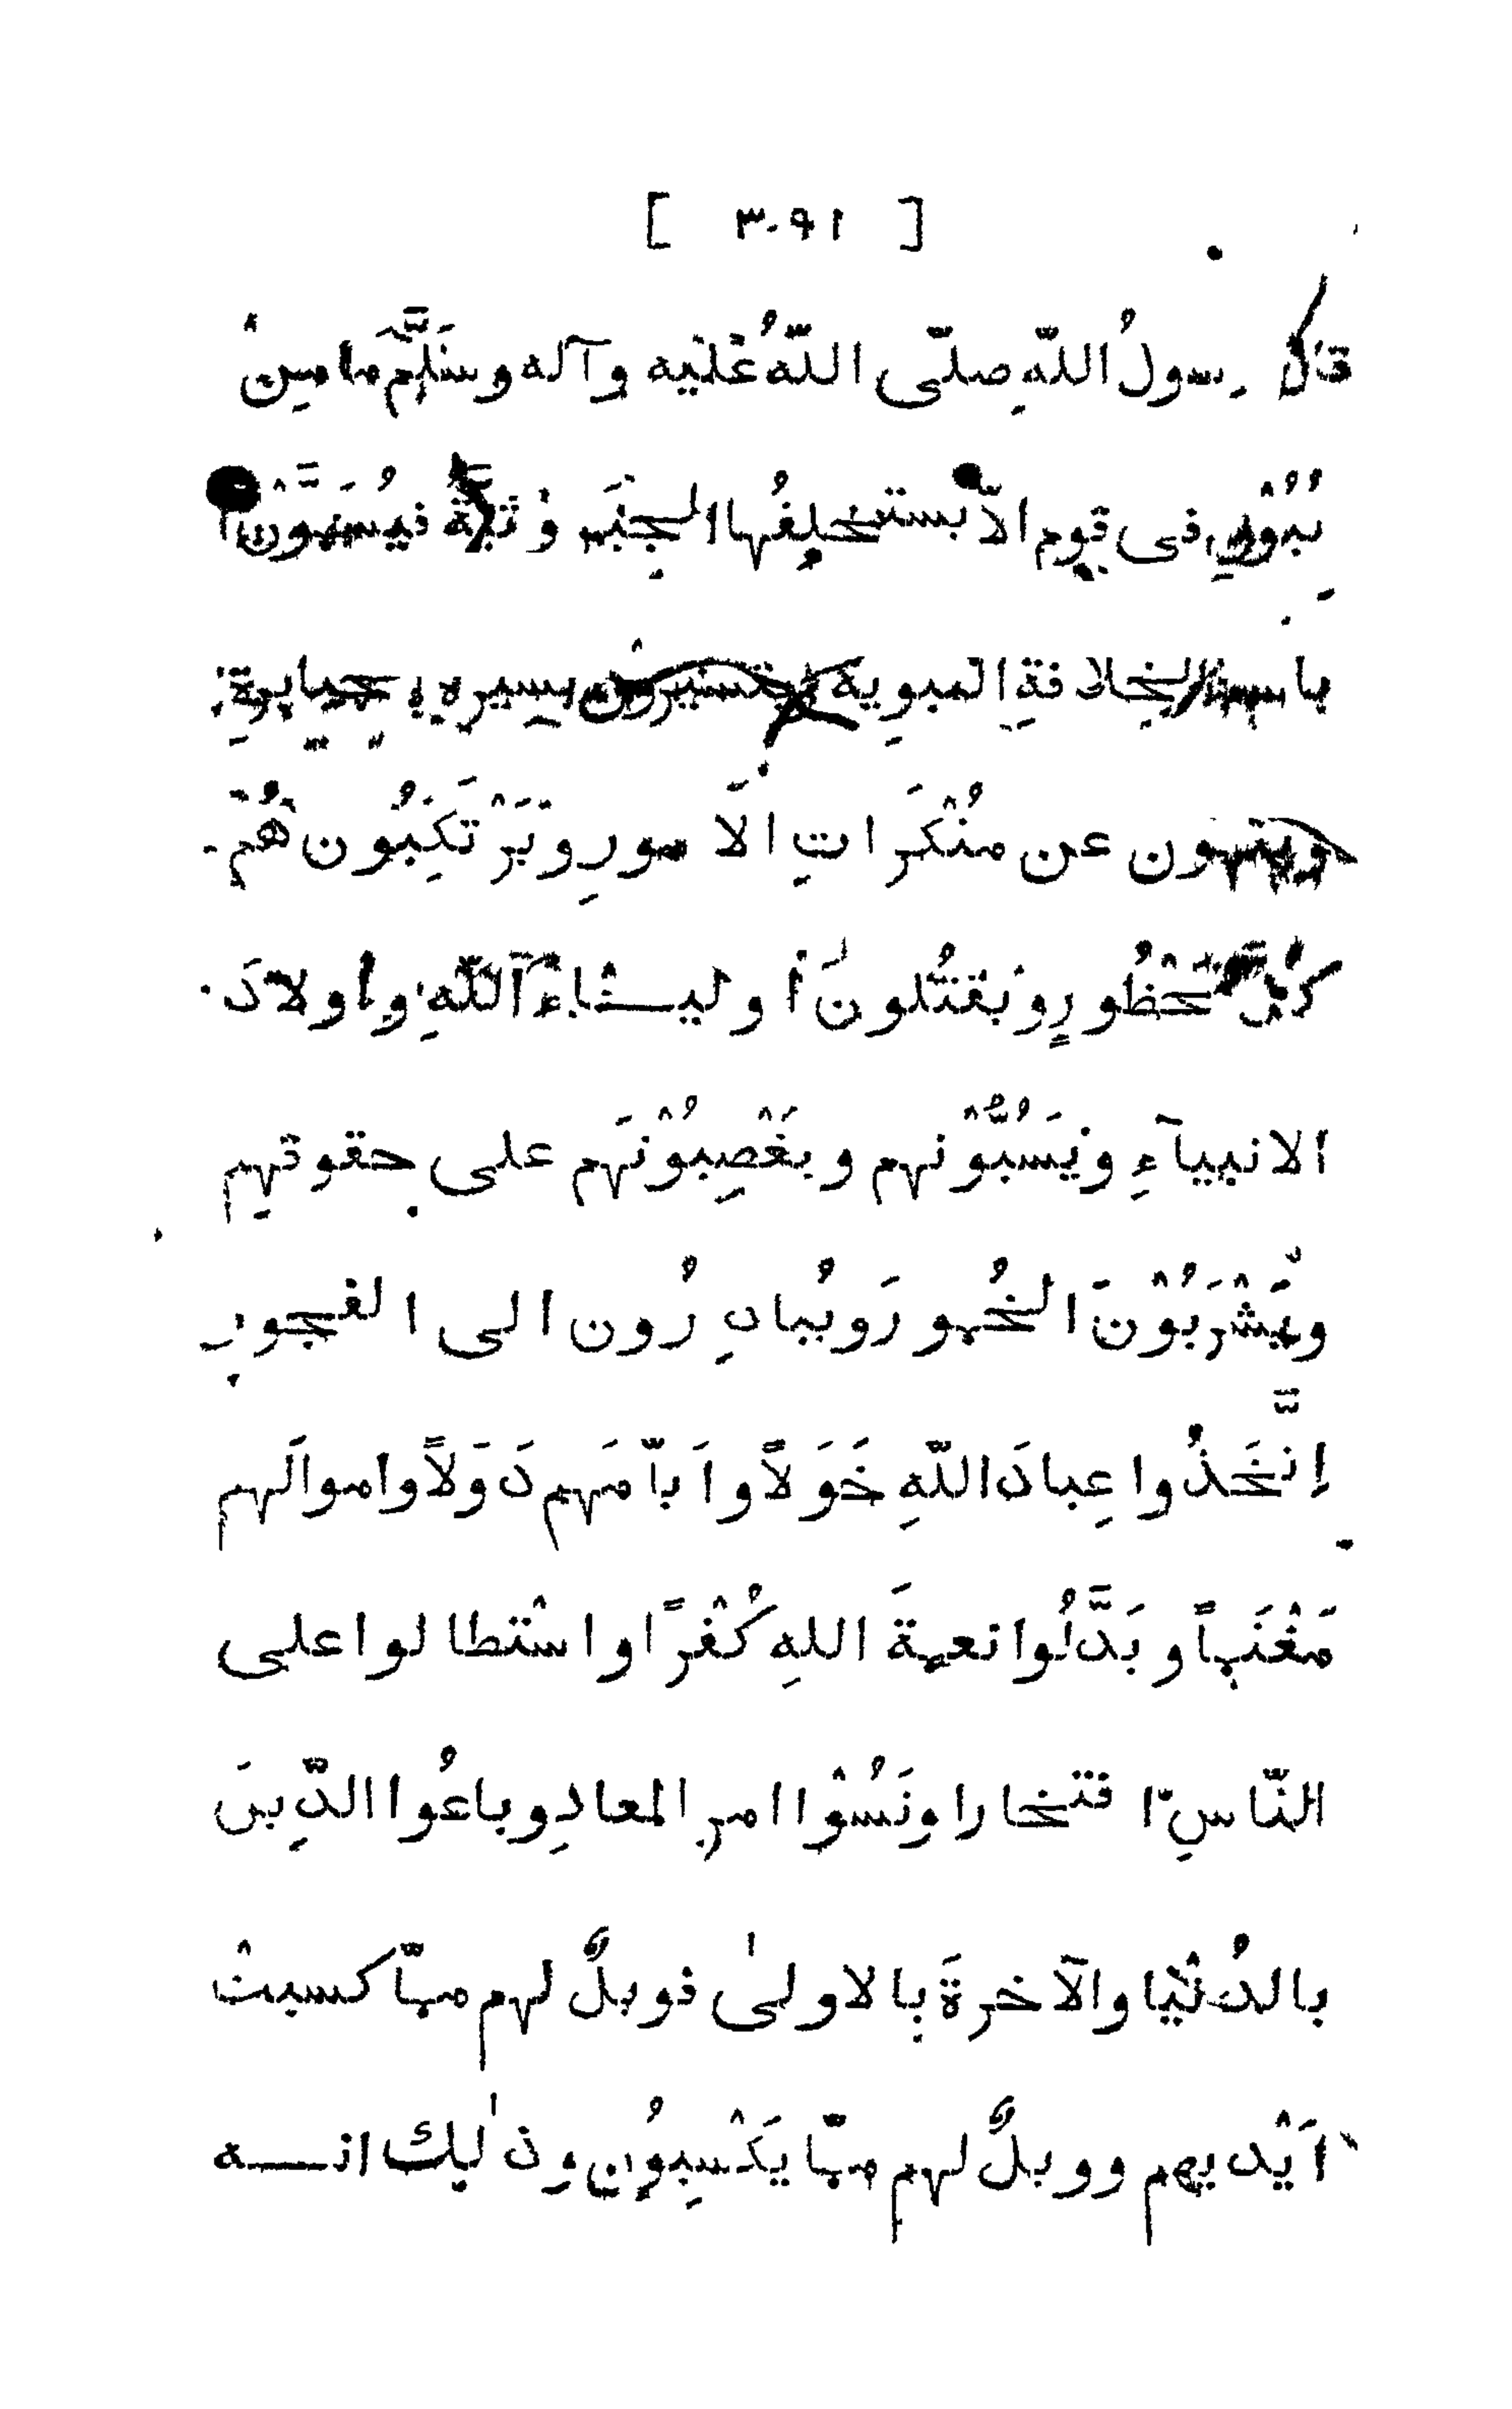 [ ٣٠٩١ ]
قال رسولُ اللّهِ صلّى اللّهُ عَلَيه وآله وسَلَّمَ ما مِنْ
فى قومٍ الاّ يستخلِفُها فيُسَمَّوْن
الخلافةِ النبوية بسيرة جبابرةِ
وينهون عن مُنْكَراتِ الاَمورِ ويَرْتَكِبُون هُمْ
كلَّ مَحْظُورٍ ويَقتُلونَ اوليــاءَ اللّهِ واولادَ
الانبيآءِ ويَسُبُّوْنهم ويَغْصِبُوْنَهم على حقوقهم
ويَشْرَبُوْنَ الخُمورَ ويُبادِرُون الى الفجور
اِتَّخَذُوا عِبادَ اللّهِ خَوَلاً واَيّامَهم دَوَلاً واموالَهم
مَغْنَماً وبَدَّلُوا نعمةَ اللهِ كُفْرًا واسْتطالوا على
النّاسِ افتخارا ونَسُوْا امر المعادِ وباعُوا الدِّينَ
بالدُّنْيَا والآخرةَ بالاولىٰ فويلٌ لهم ممّا كسبتْ
اَيْديهم وويلٌ لهم ممّا يَكْسِبُون وذٰلِك انــه